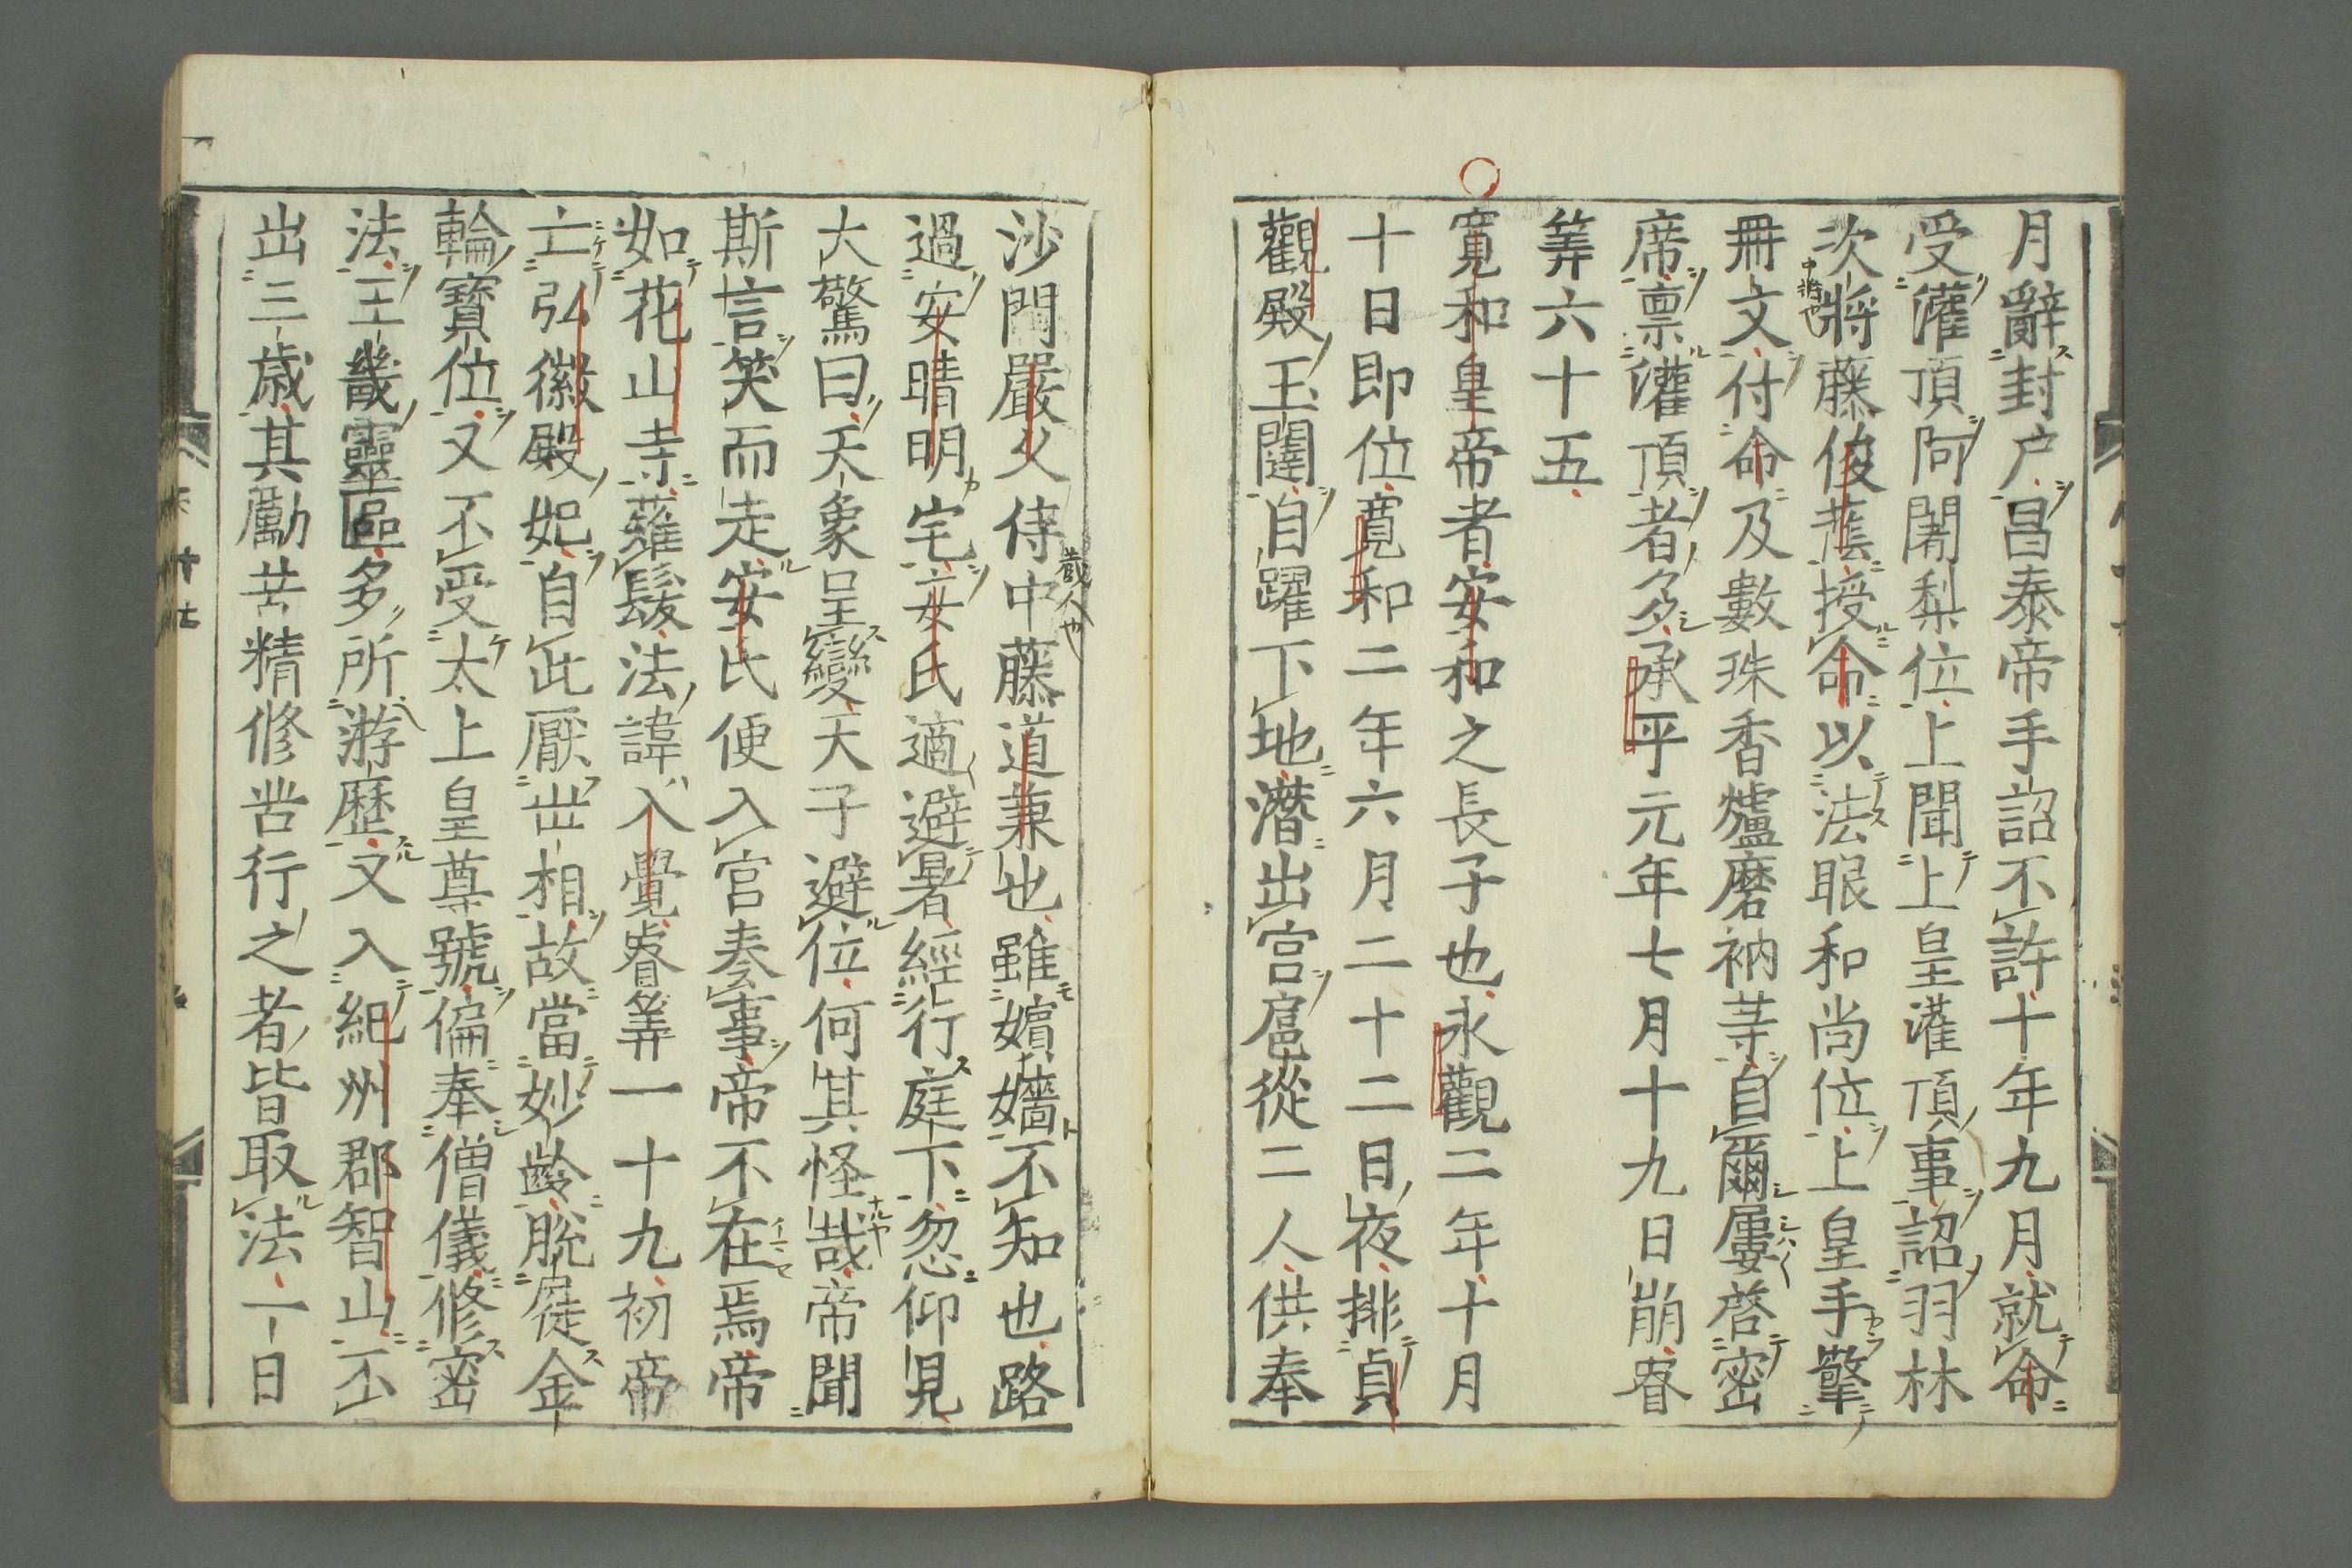 月辭封户昌泰帝手詔不許十年九月就命
受灌頂阿闍梨位上聞上皇灌頂事詔羽林
次將藤俊蔭授命以法眼和尚位上皇手擎
冊文付命及數珠香爐磨衲䒭自爾屢啓密
席禀灌頂者多承平元年七月十九日崩睿
筭六十五
寬和皇帝者安和之長子也永觀二年十月
十日即位寛和二年六月二十二日夜排貞
觀殿玉闥自躍下地潛出宫扈從二人供奉
沙門嚴父侍中藤道兼也雖嬪嬙不知也路
過安晴明宅安氏適避暑經行庭下忽仰見
大驚曰天象呈變天子避位何其怪哉帝聞
斯言笑而走安氏便入宫奏事帝不在焉帝
如花山寺薙髮法諱入覺睿筭一十九初帝
亡弘徽殿妃自此厭世相故當妙齡脫屣金
輪寶位又不受太上皇尊號偏奉僧儀修密
法王畿靈區多所游歷又入紀州郡智山不
出三歲其勵苦精修苦行之者皆取法一日